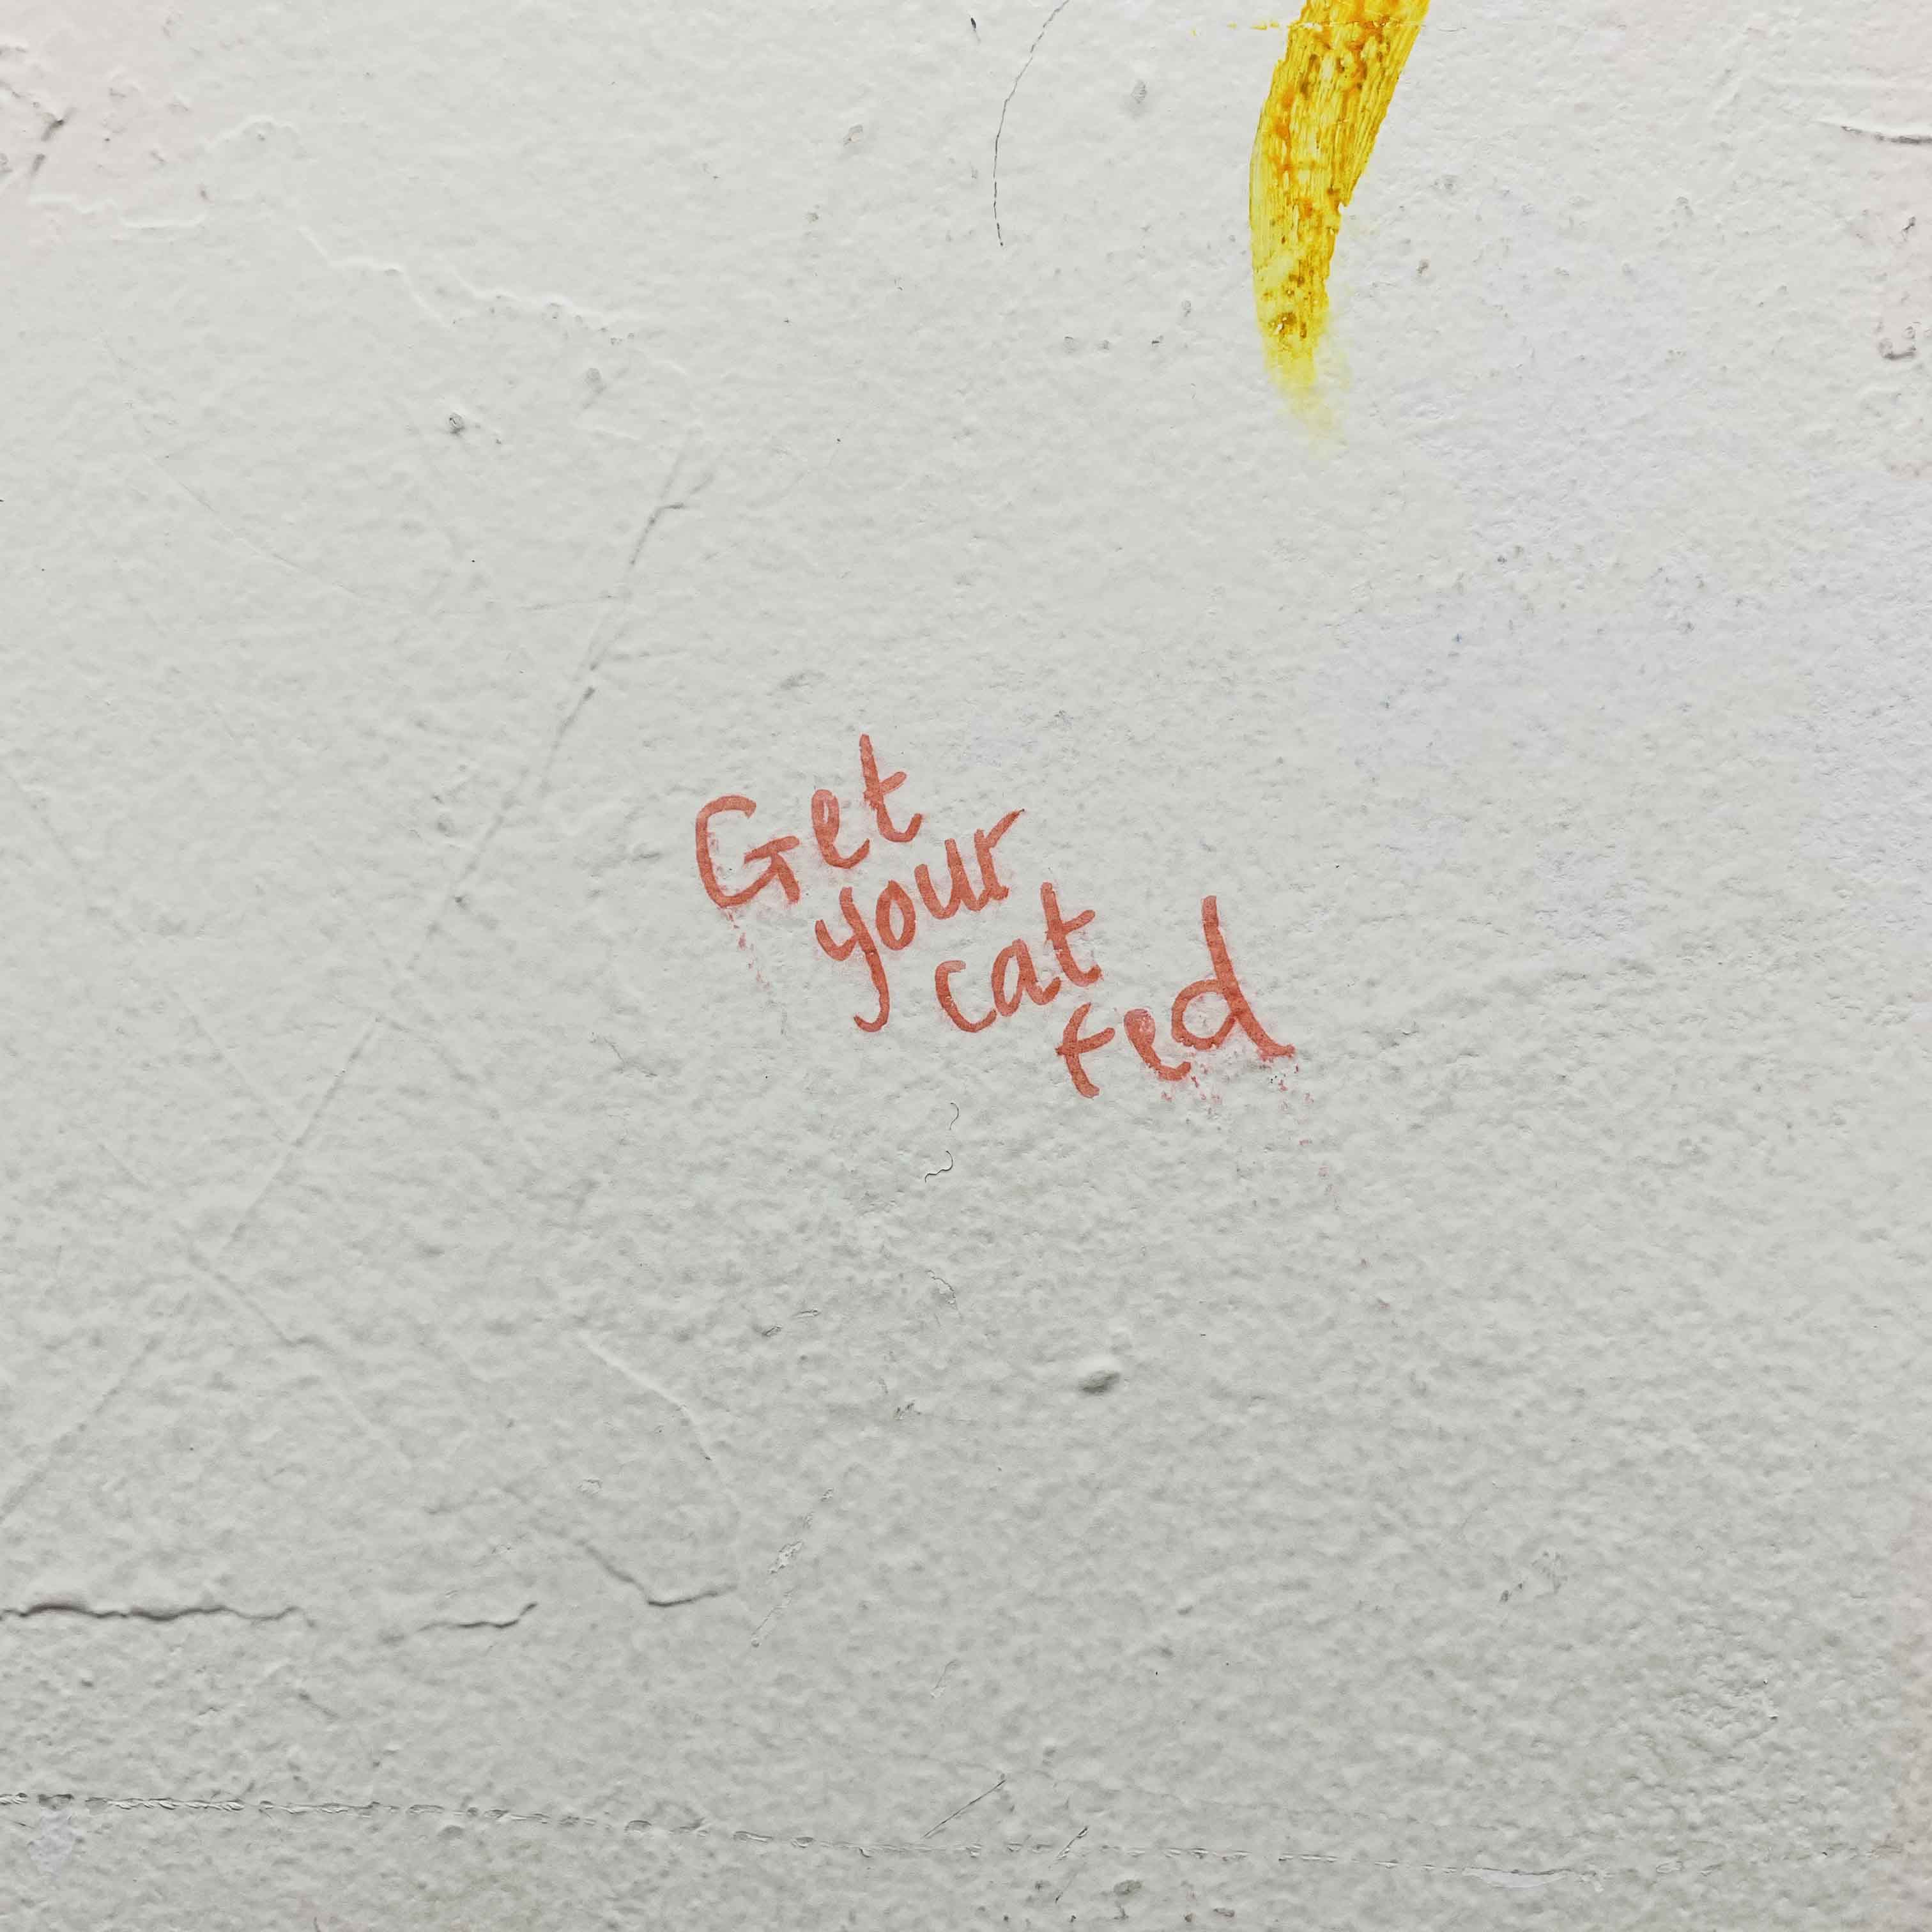 Get
your
cat
fed